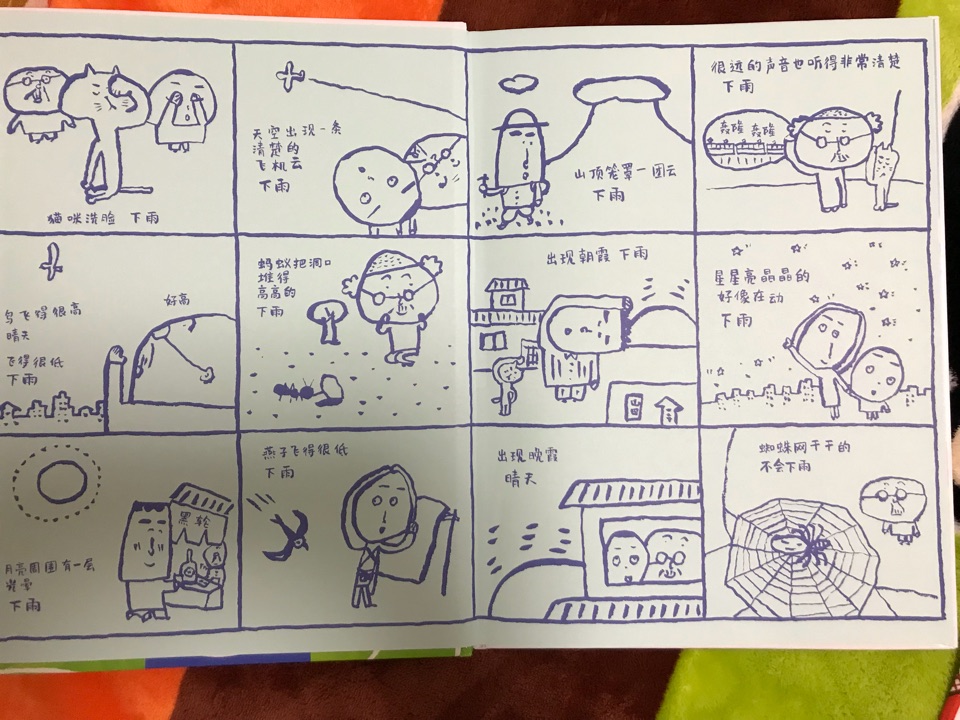 貓咪洗脸 下雨
天空出现一条
清楚的
飞机云
下雨
山顶笼罩一团云
下雨
很远的声音也听得非常清楚
下雨
轰隆 轰隆
鸟飞得很高
晴天
飞得很低
下雨
好高
蚂蚁把洞口
堆得
高高的
下雨
出现朝霞 下雨
星星亮晶晶的
好像在动
下雨
月亮周围有一层
下雨
黑轮
燕子飞得很低
下雨
出现晚霞
晴天
蜘蛛网干干的
不会下雨